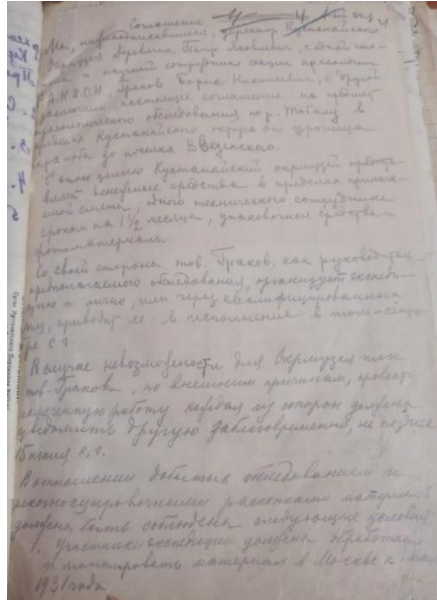 Соглашение
Мы, нижеподписавшиеся, директор Кустанайского
Окрмузея Петр Яковлевич, с одной сто-
роны и научный сотрудник секции археологии
Р.А.Н.И.О.Н. Граков Борис Николаевич, с другой
заключили настоящее соглашение на предмет
археологического обследования по р. Тоболу в
пределах Кустанайского округа от урочища
до поселка Введенского.
С этою целью Кустанайский окрмузей предоста-
вляет денежные средства в пределах
сметы, одного технического сотрудника
сроком на 1½ месяца, упаковочные средства и
фотоматериалы.
Со своей стороны тов. Граков, как руководитель
предполагаемого обследования, организует экспеди-
цию и лично, или через квалифицированных
лиц, приводит ее в исполнение в
с.г.
В случае невозможности для Окрмузея или
тов. Гракова, по внешним причинам, провести
намеченную работу каждая из сторон должна
уведомить другую заблаговременно, не позднее
15 июля с.г.
В отношении добытых обследованием и
рекогносцировочными раскопками материалов
должны быть соблюдены следующие условия
1. Участники экспедиции должны обработать
и монтировать материал в Москве к
1931 года